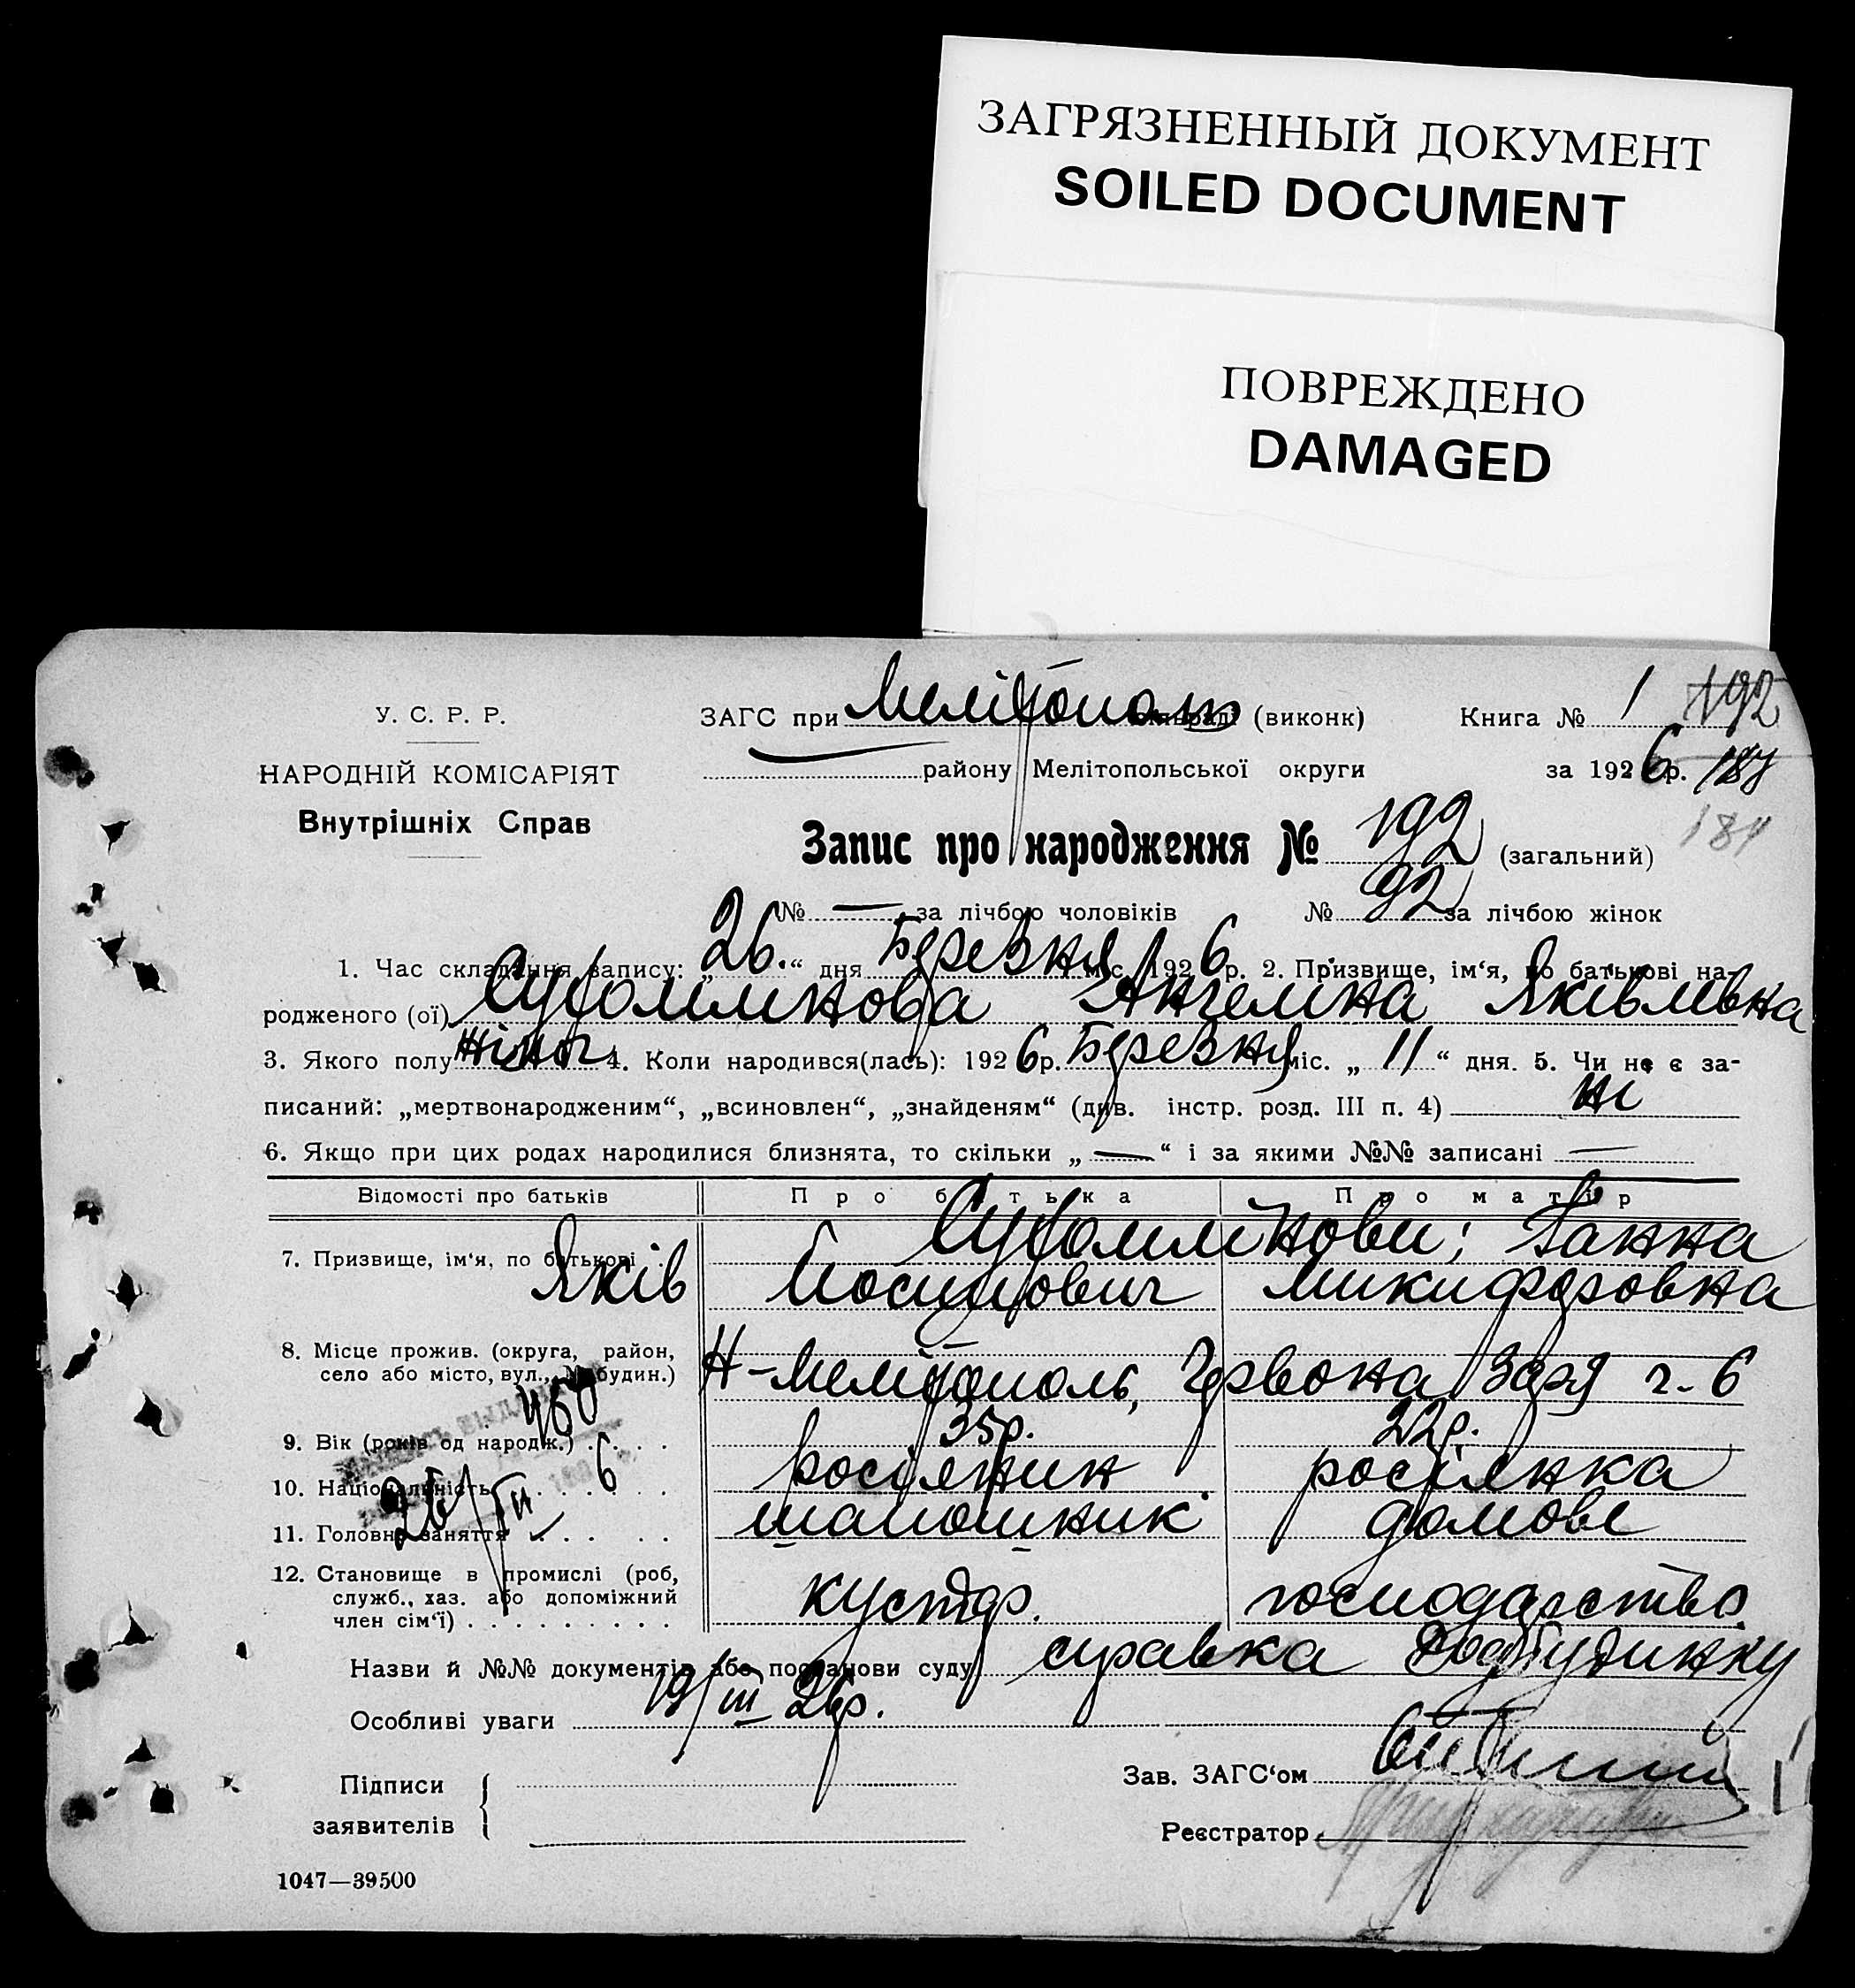 ЗАГРЯЗНЕННЫЙ ДОКУМЕНТ
SOILED DOCUMENT
ПОВРЕЖДЕНО
DAMAGED
У. С. Р. Р.
НАРОДНІЙ КОМІСАРІЯТ
Внутрішніх Справ
ЗАГС при Мелітопол (виконк)
району Мелітопольської округи
Книга № 1 192
за 1926 р. 187
184
Запис про народження № 192 (загальний)
№ — за лічбою чоловіків № 92 за лічбою жінок
1. Час складання запису: „26.“ дня Березня міс. 1926 р. 2. Призвище, ім‘я, по батькові на-
родженого (ої) Сухомлинова Ангелина Яківлівна
3. Якого полу жіноч 4. Коли народився(лась): 1926 р. Березня міс. „11“ дня. 5. Чи не є за-
писаний: „мертвонародженим“, „всиновлен“, „знайденям“ (див. інстр. розд. III п. 4) ні
6. Якщо при цих родах народилися близнята, то скільки „—“ і за якими №№ записані —
Відомості про батьків Про батька Про матір
7. Призвище, ім‘я, по батькові Сухомлинови; Ганна
Яків Йосипович Микифоровна
8. Місце прожив. (округа, район,
село або місто, вул., № будин.) Н-Мелітополь, Червона Заря ч-6
9. Вік (років од народж.) 35р. 22р.
10. Національність росіянин росіянка
11. Головне заняття шапошник домове
12. Становище в промислі (роб,
служб., хаз. або допоміжний
член сім‘ї) кустар. господарство
450
26/III 6
Назви й №№ документів або постанови суду справка Родбудинку
19/III 26р.
Особливі уваги
Підписи
заявителів
Зав. ЗАГС‘ом
Реєстратор
1047—39500